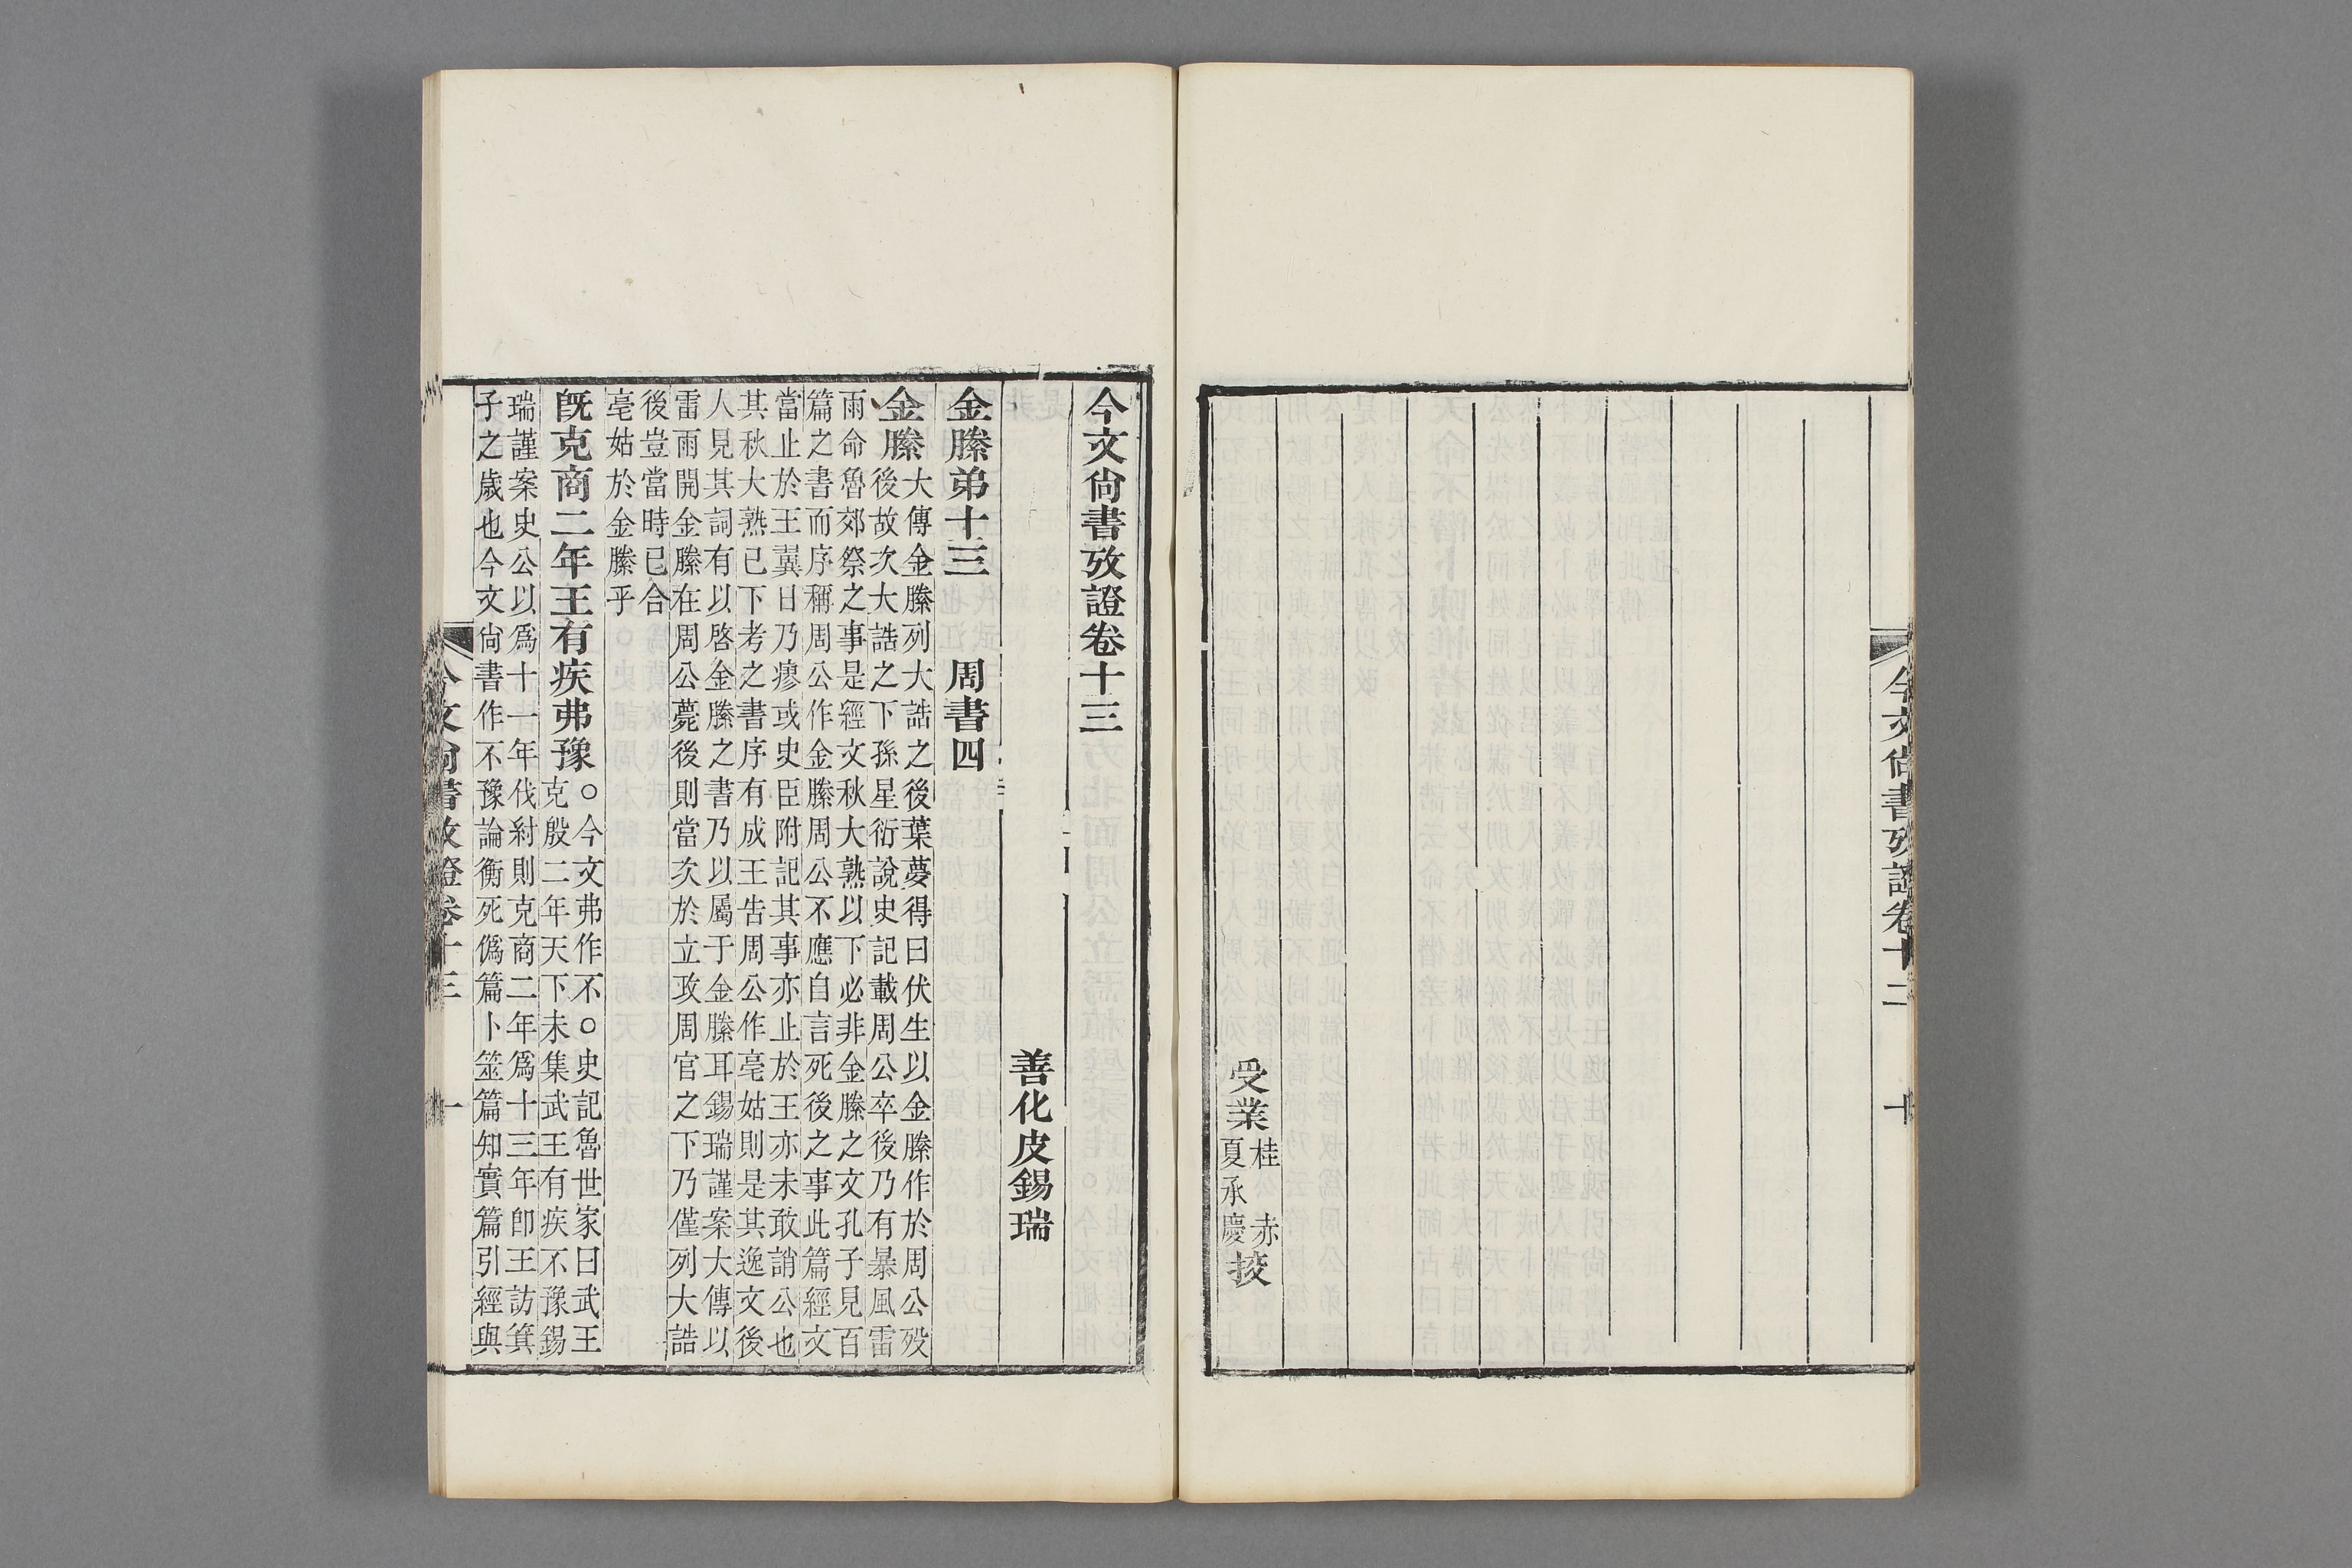 今文尙書攷證卷十二
十
受業
桂　赤
夏承慶
挍
今文尙書攷證卷十三
善化皮錫瑞
金縢弟十三　周書四
金縢
大傳金縢列大誥之後葉夢得曰伏生以金縢作於周公歿
後故次大誥之下孫星衍說史記載周公卒後乃有暴風雷
雨命魯郊祭之事是經文秋大熟以下必非金縢之文孔子見百
篇之書而序稱周公作金縢周公不應自言死後之事此篇經文
當止於王翼日乃瘳或史臣附記其事亦止於王亦未敢誚公也
其秋大熟已下考之書序有成王告周公作亳姑則是其逸文後
人見其詞有以啓金縢之書乃以屬于金縢耳錫瑞謹案大傳以
雷雨開金縢在周公薨後則當次於立政周官之下乃僅列大誥
後豈當時已合
亳姑於金縢乎
旣克商二年王有疾弗豫
○今文弗作不○史記魯世家曰武王
克殷二年天下未集武王有疾不豫錫
瑞謹案史公以爲十一年伐紂則克商二年爲十三年卽王訪箕
子之歲也今文尙書作不豫論衡死僞篇卜筮篇知實篇引經與
今文尙書攷證卷十三
一